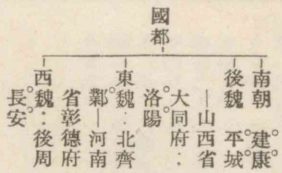 國都
南朝 建康
後魏 平城
—山西省
大同府‥
洛陽
東魏‥北齊
鄴—河南
省彰德府
西魏‥後周
長安